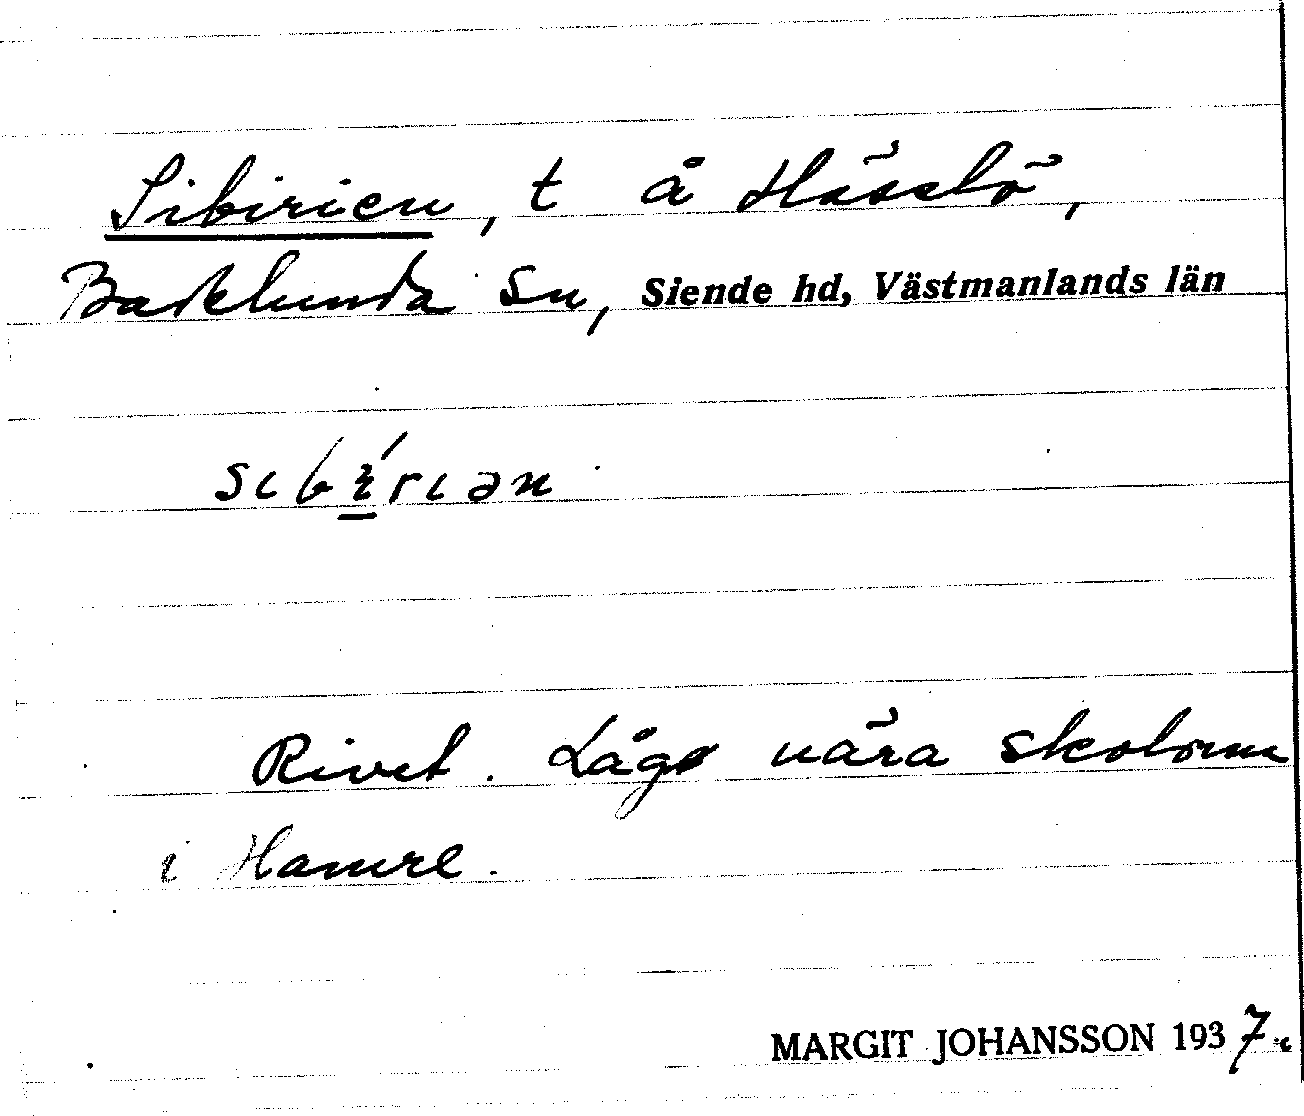 Sibirien, t å Hässlö,
Badelunda sn, Siende hd, Västmanlands län
sıbı́rıən
Rivet. Låg nära skolorna
i Hamre.
MARGIT JOHANSSON 1937.